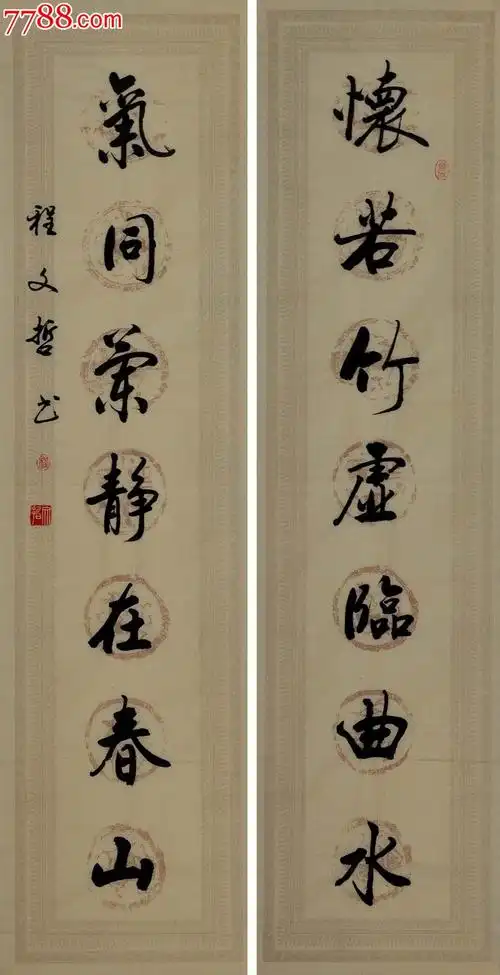 7788.com
懷若竹虛臨曲水
氣同蘭靜在春山
程文哲书